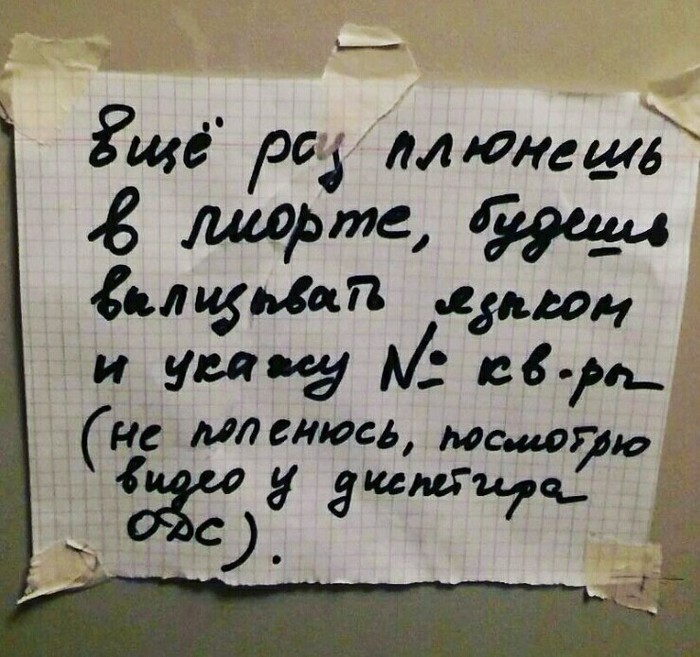 Ещё раз плюнешь
в лифте, будешь
вылизывать языком
и укажу № кв-ры
(не поленюсь, посмотрю
видео у диспетчера
ОДС).